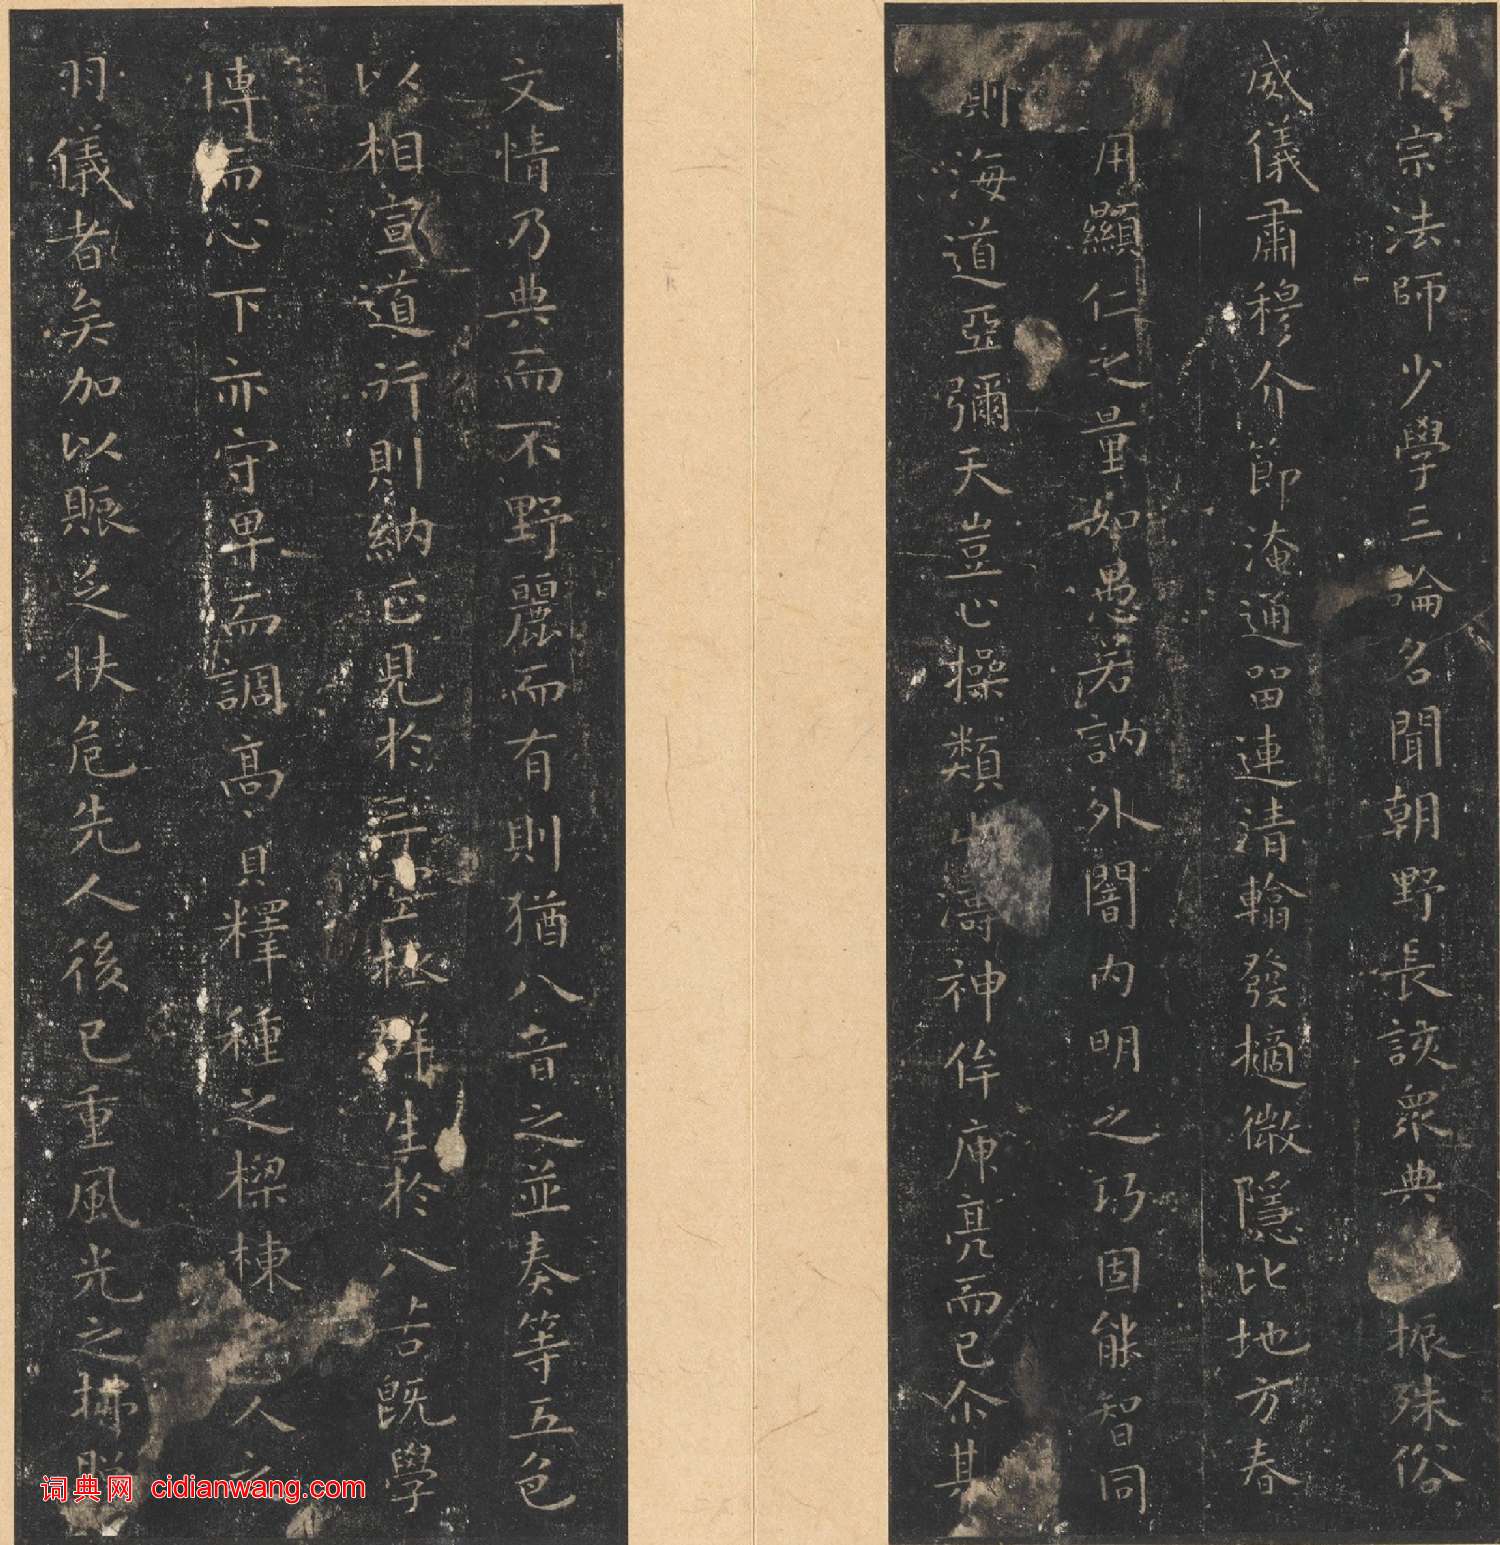 宗法師少學三論名聞朝野長該衆典振殊俗
威儀肅穆介節淹通留連清翰發擿微隱比地方春
用顯仁之量如愚若訥外闇内明之巧固能智同
則海道亞彌天豈止操類山濤神侔庾亮而已尒其
文情乃典而不野麗而有則猶八音之並奏等五色
以相宣道行則納正見於三空拯群生於八苦既學
博而心下亦守卑而調高實釋種之樑棟人之
羽儀者矣加以賑乏扶危先人後己重風光之拂照
词典网 cidianwang.com